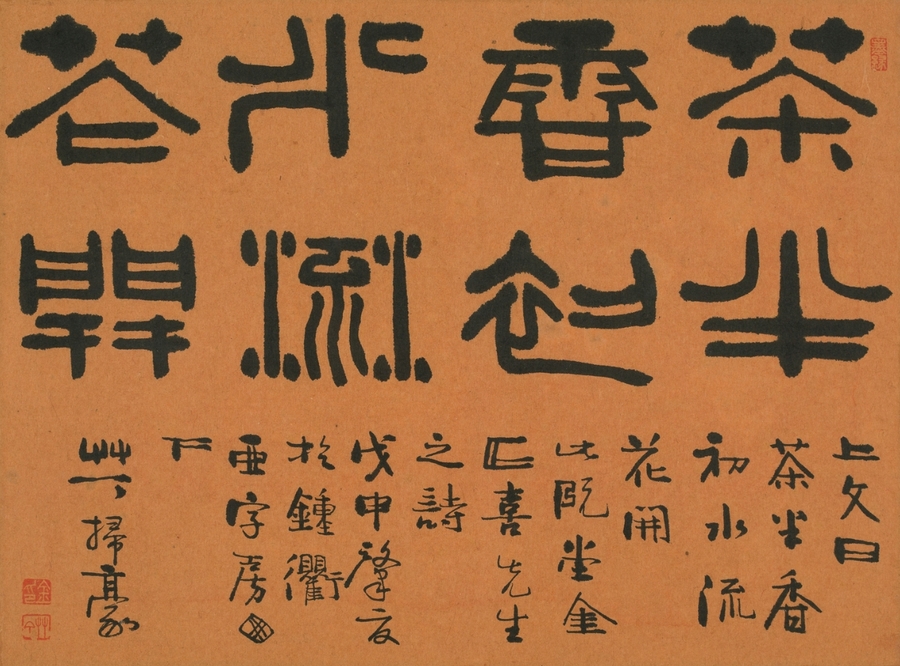 茶半
香初
水流
花開
上文曰
茶半香
初水流
花開
此阮堂金
正喜先生
之詩
戊申肇夏
於鍾衢
亞字房囪
下
艸丁掃毫